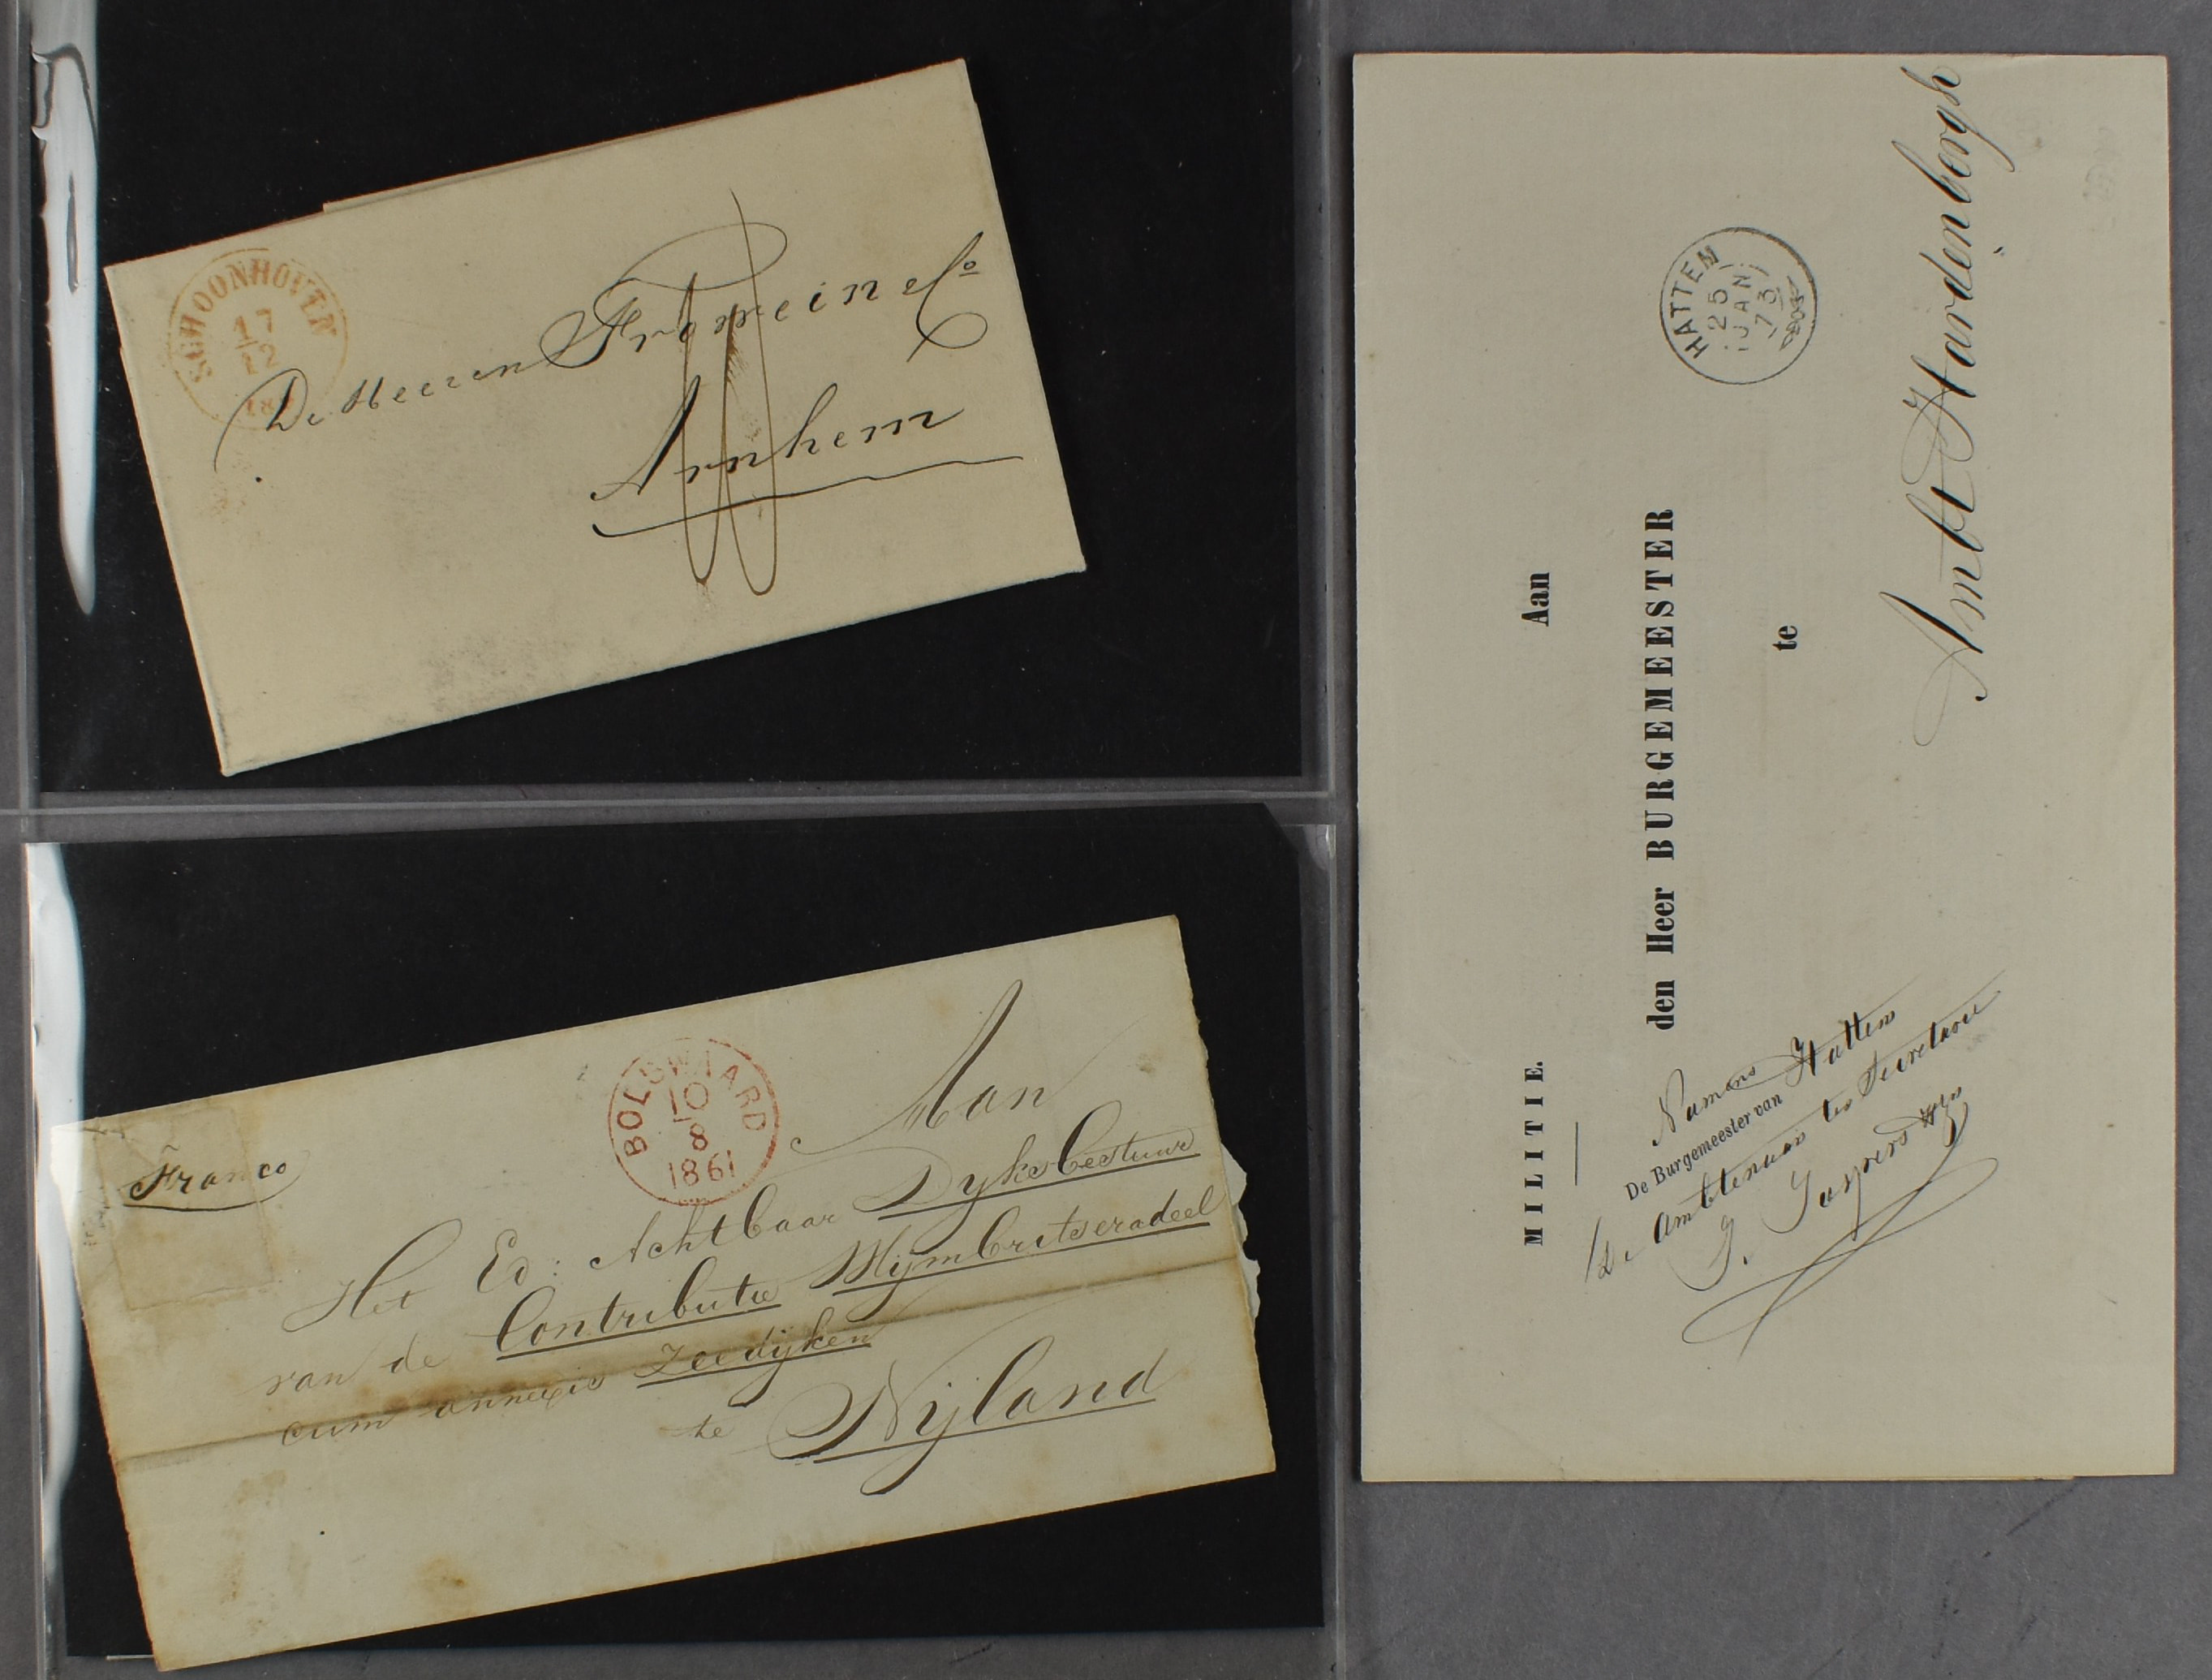 SCHOONHOVEN
17
12
De Heeren Frowein & Co
Arnhem
Franco
BOLSWARD
10
8
1861
Aan
Het Ed: Achtbaar Dyksbestuur
van de Contributie Wymbritseradeel
cum annexis Zeedijken
te Nijland
MILITIE.
Aan
den Heer BURGEMEESTER
te
Ambt Hardenbergh
HATTEM
25
JAN
73
Namens
De Burgemeester van Hattem
De Ambtenaar ter Secretarie
J. Jaspers